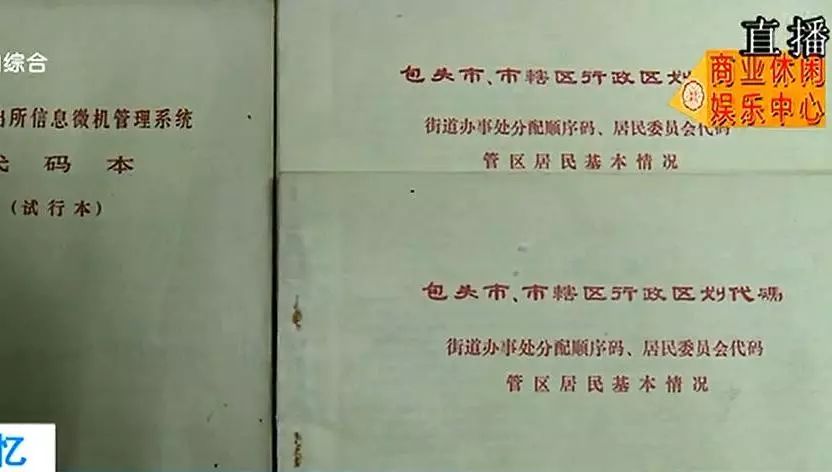 综合
直播
商业休闲
娱乐中心
所信息微机管理系统
码本
(试行本)
包头市、市辖区行政区划
街道办事处分配顺序码、居民委员会代码
管区居民基本情况
包头市、市辖区行政区划代码
街道办事处分配顺序码、居民委员会代码
管区居民基本情况
忆